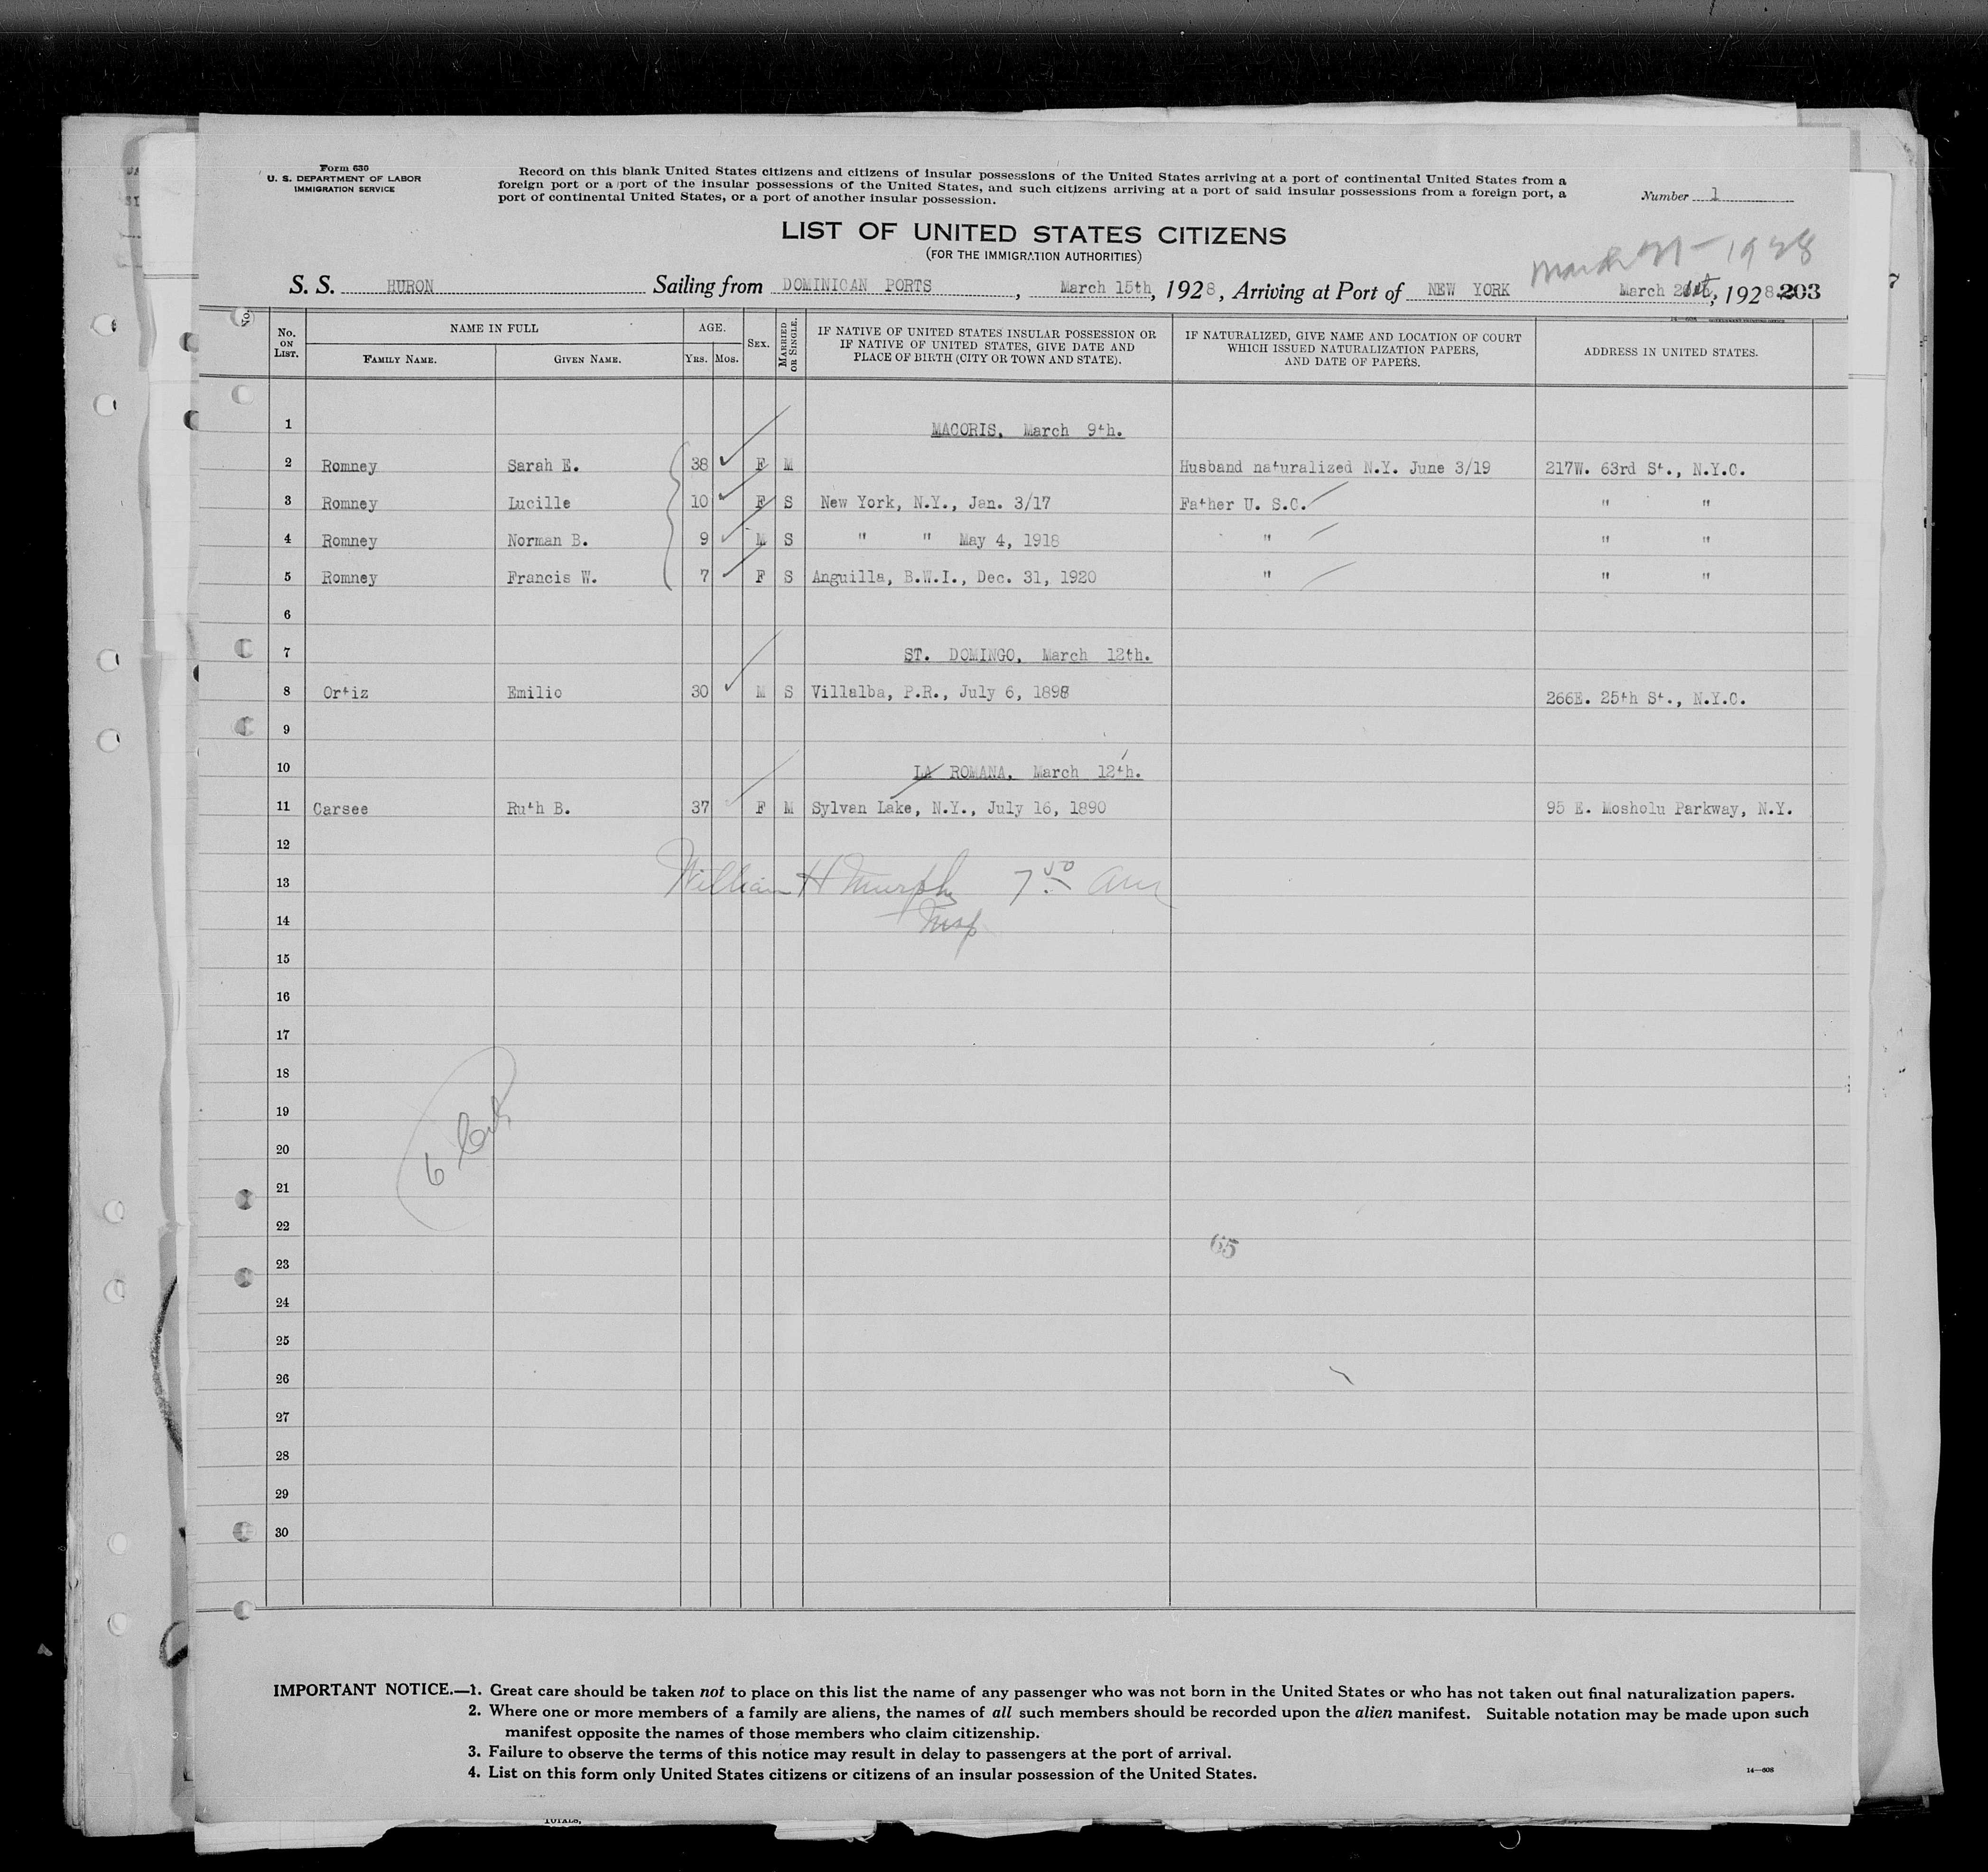 Form 630
U. S. DEPARTMENT OF LABOR
IMMIGRATION SERVICE
Record on this blank United States citizens and citizens of insular possessions of the United States arriving at a port of continental United States from a
foreign port or a port of the insular possessions of the United States, and such citizens arriving at a port of said insular possessions from a foreign port, a
port of continental United States, or a port of another insular possession.
Number 1
LIST OF UNITED STATES CITIZENS
(FOR THE IMMIGRATION AUTHORITIES)
March 21 - 1928
S. S. HURON Sailing from DOMINICAN PORTS, March 15th, 1928, Arriving at Port of NEW YORK March 21st, 1928 203
No. ON LIST. NAME IN FULL AGE. SEX. MARRIED OR SINGLE. IF NATIVE OF UNITED STATES INSULAR POSSESSION OR IF NATIVE OF UNITED STATES, GIVE DATE AND PLACE OF BIRTH (CITY OR TOWN AND STATE). IF NATURALIZED, GIVE NAME AND LOCATION OF COURT WHICH ISSUED NATURALIZATION PAPERS, AND DATE OF PAPERS. ADDRESS IN UNITED STATES.
FAMILY NAME. GIVEN NAME. YRS. MOS.
1 MACORIS, March 9th.
2 Romney Sarah E. 38 F M Husband naturalized N.Y. June 3/19 217W. 63rd St., N.Y.C.
3 Romney Lucille 10 F S New York, N.Y., Jan. 3/17 Father U. S.C. " "
4 Romney Norman B. 9 M S " " May 4, 1918 " " "
5 Romney Francis W. 7 F S Anguilla, B.W.I., Dec. 31, 1920 " " "
6
7 ST. DOMINGO, March 12th.
8 Ortiz Emilio 30 M S Villalba, P.R., July 6, 1898 266E. 25th St., N.Y.C.
9
10 LA ROMANA, March 12th.
11 Carsee Ruth B. 37 F M Sylvan Lake, N.Y., July 16, 1890 95 E. Mosholu Parkway, N.Y.
12
13 William H Murphy 7 50 am
14 Insp
15
16
17
18
19
20
6
21
22
65
23
24
25
26
27
28
29
30
IMPORTANT NOTICE.—1. Great care should be taken not to place on this list the name of any passenger who was not born in the United States or who has not taken out final naturalization papers.
2. Where one or more members of a family are aliens, the names of all such members should be recorded upon the alien manifest. Suitable notation may be made upon such
manifest opposite the names of those members who claim citizenship.
3. Failure to observe the terms of this notice may result in delay to passengers at the port of arrival.
4. List on this form only United States citizens or citizens of an insular possession of the United States.
14—608
TOTALS,